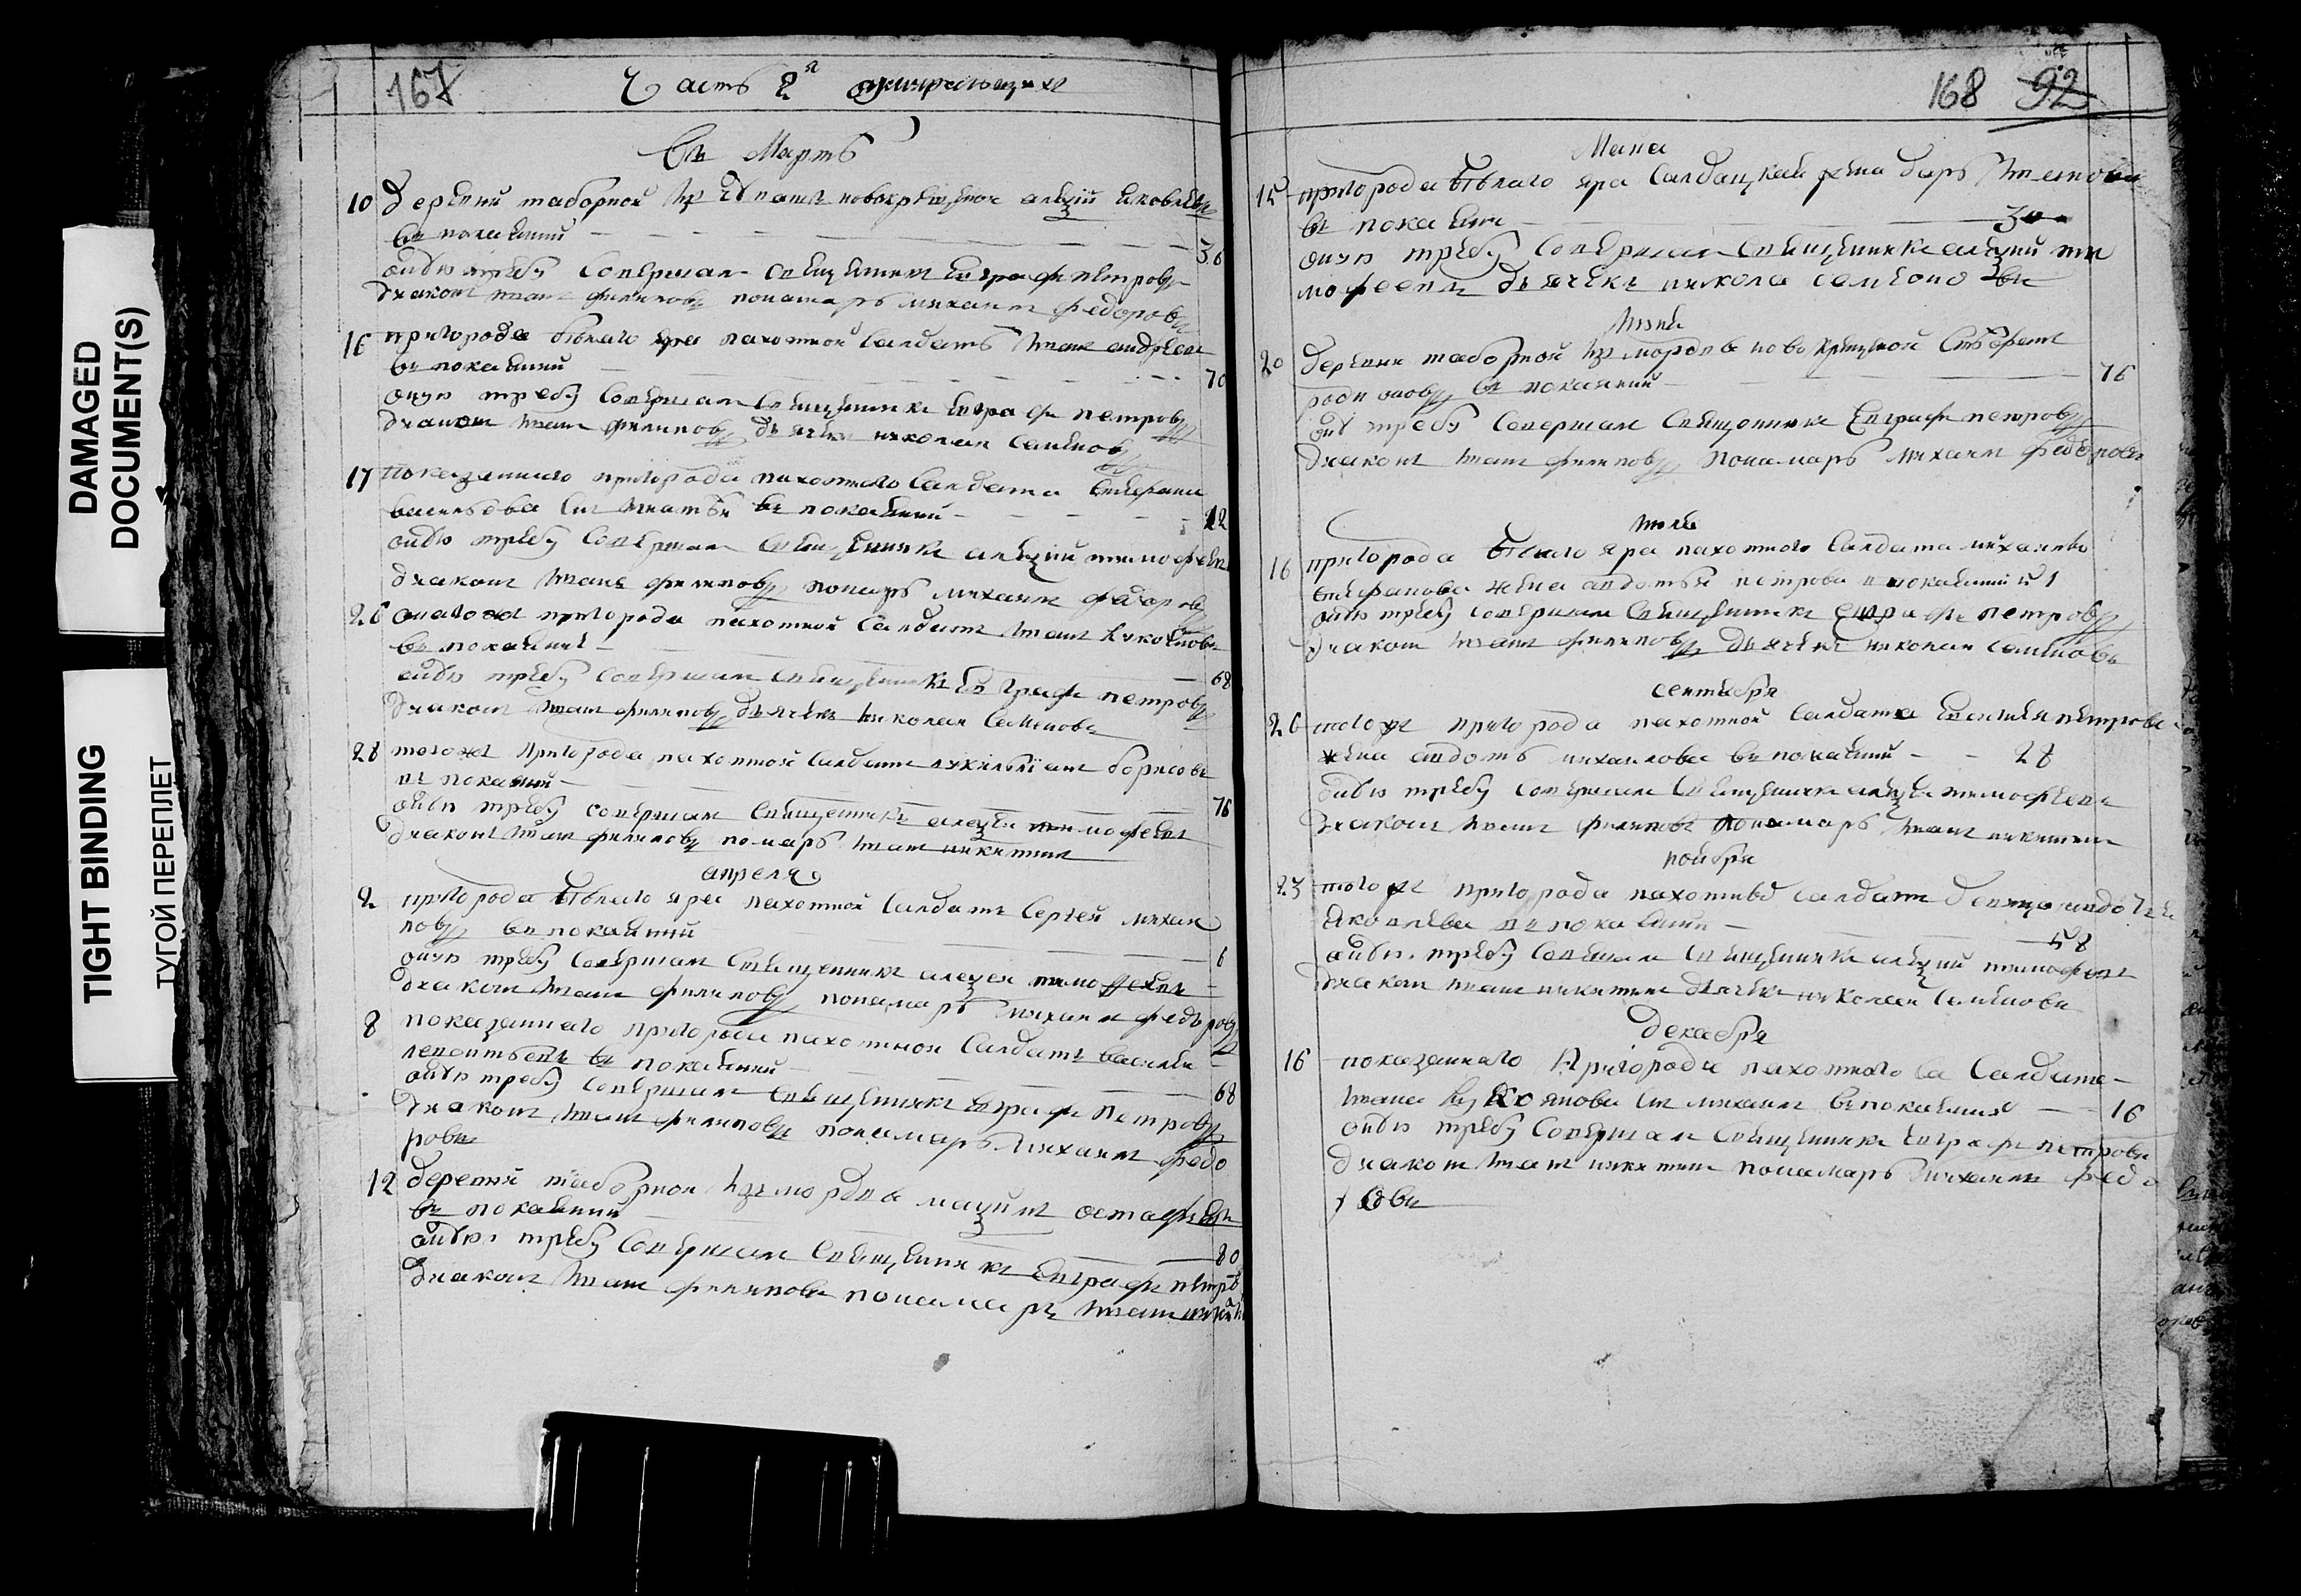 DAMAGED
DOCUMENT(S)
TIGHT BINDING
ТУГОЙ ПЕРЕПЛЕТ
167
Часть 2я
въ Мартѣ
10 деревни таборной новокрещенои алеѯѣй яковлевъ
въ покаянии
сию требу совершал священникъ Евграфъ петровъ
диаконъ иванъ филиповъ понамарь михаилъ федоровъ
16 пригорода белаго яра пахотной салдатъ иванъ андреевъ
въ покаянии 70
оную требу совершал священникъ Евграфъ петровъ
диаконъ иванъ филиповъ дьячекъ николаи семеновъ
17 показаннаго пригорода пахотнаго салдата
васильева сынъ игнатеи въ покаянии
сию требу совершал священникъ алеѯѣй тимофеевъ
диаконъ иванъ филиповъ понарь михаилъ федоровъ
26 пригорода пахотной салдатъ иванъ
въ покаянии 68
сию требу совершал священникъ Евграфъ петровъ
диаконъ иванъ филиповъ дьячекъ николаи семеновъ
28 того жъ пригорода пахотной салдатъ борисовъ
въ покаянии 76
сию требу совершал священникъ алеѯѣи тимофеевъ
диаконъ иванъ филиповъ помарь иванъ никитинъ
апреля
2 пригорода белаго яра пахотной салдатъ Сергей михаи
ловъ въ покаянии 6
оную требу совершал священникъ алеѯѣя тимофеевъ
диаконъ иванъ филиповъ понамарь михаила федоровъ
8 показаннаго пригорода пахотнои салдатъ василеи
леонтьевъ въ покаянии 68
сию требу совершал священникъ Евграфъ петровъ
диаконъ иванъ филиповъ понамарь михаилъ федо
ровъ
12 деревни таборнои изъ мордвы маѯимъ остафьевъ
въ покаянии 80
сию требу совершал священникъ Евграфъ петровъ
диаконъ иванъ филиповъ понамарь иванъ
168 92
Маиа
15 пригорода белаго яра салдацкая жена дарья
въ покаянии 30
оную требу совершал священникъ алеѯѣй ти
мофеевъ дьячекъ никола семеновъ
июня
20 деревни таборной изъ мордвы новокрещеной Стефанъ
родионовъ въ покаянии 76
требу совершал священникъ Евграфъ петровъ
диаконъ иванъ филиповъ понамарь михаилъ федоровъ
июля
16 пригорода белаго яра пахотнаго салдата михаила
жена авдотья петрова в покаянии
сию требу совершал священникъ Евграфъ петровъ
диаконъ иванъ филиповъ дьячекъ николаи семеновъ
сентября
26 того жъ пригорода пахотной салдата петрова
жена авдоть михаилова въ покаянии 28
сию требу совершал священникъ алеѯѣи тимофеевъ
диаконъ иванъ филиповъ понамарь иванъ никитинъ
ноября
23 того жъ пригорода пахотны салдатъ
яковлева въ покаянии 58
сию требу совершал священникъ алеѯѣй тимофеевъ
диаконъ иванъ никитинъ дьячекъ николаи семеновъ
декабря
16 показаннаго пригорода пахотнаго салдата
ивана сынъ михаилъ въ покаянии 16
сию требу совершал священникъ Евграфъ петровъ
диаконъ иванъ никитинъ понамарь михаилъ федо
ровъ